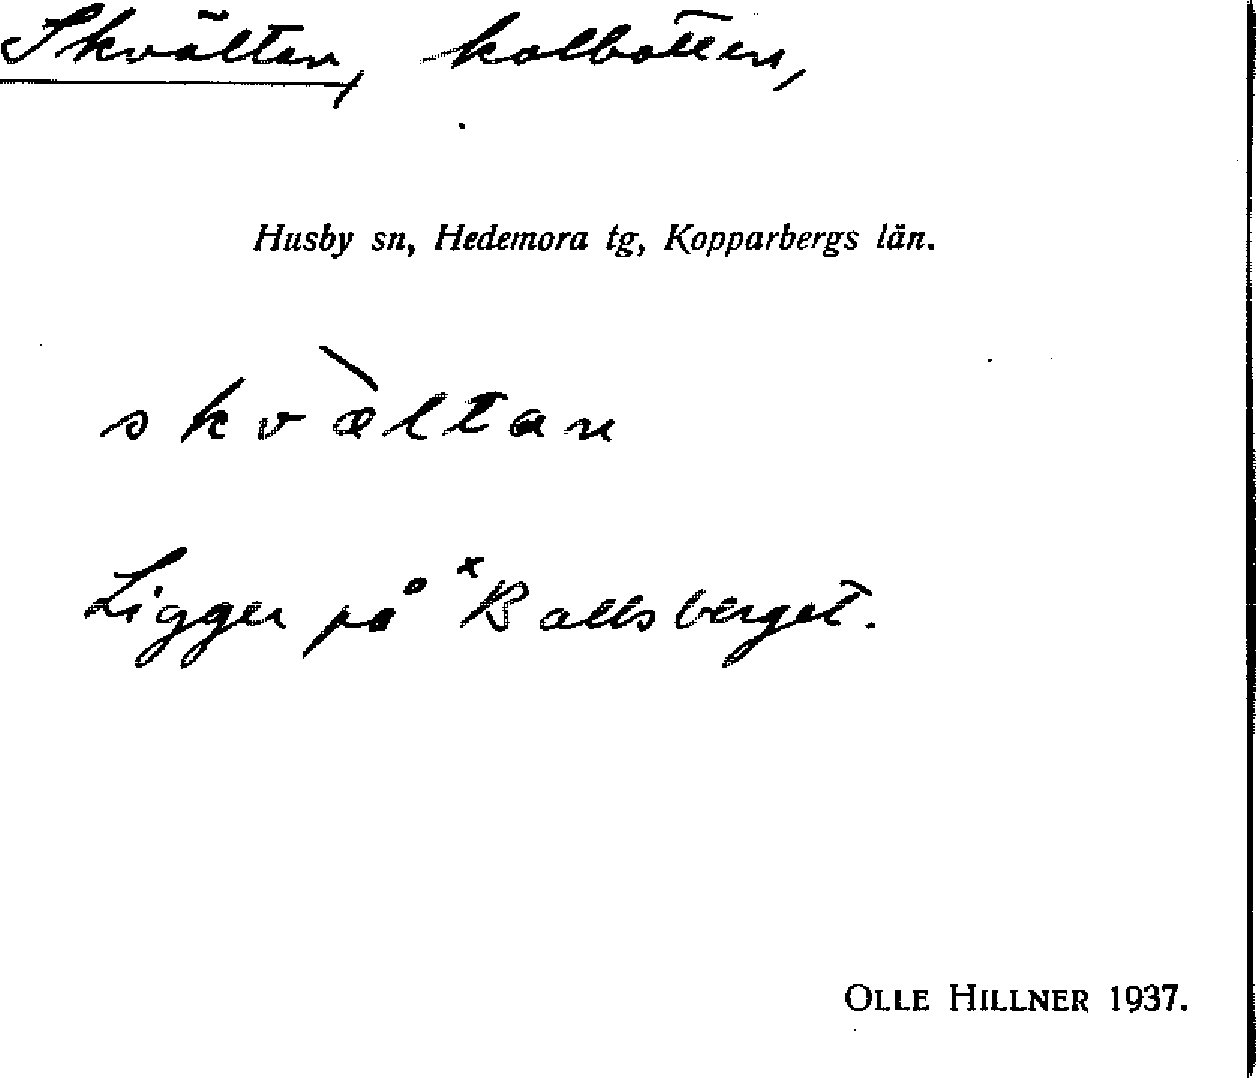 Skvältan, kolbotten,
Husby sn, Hedemora tg, Kopparbergs län.
skvæ̀ltan
Ligger på ˣBallsberget.
OLLE HILLNER 1937.